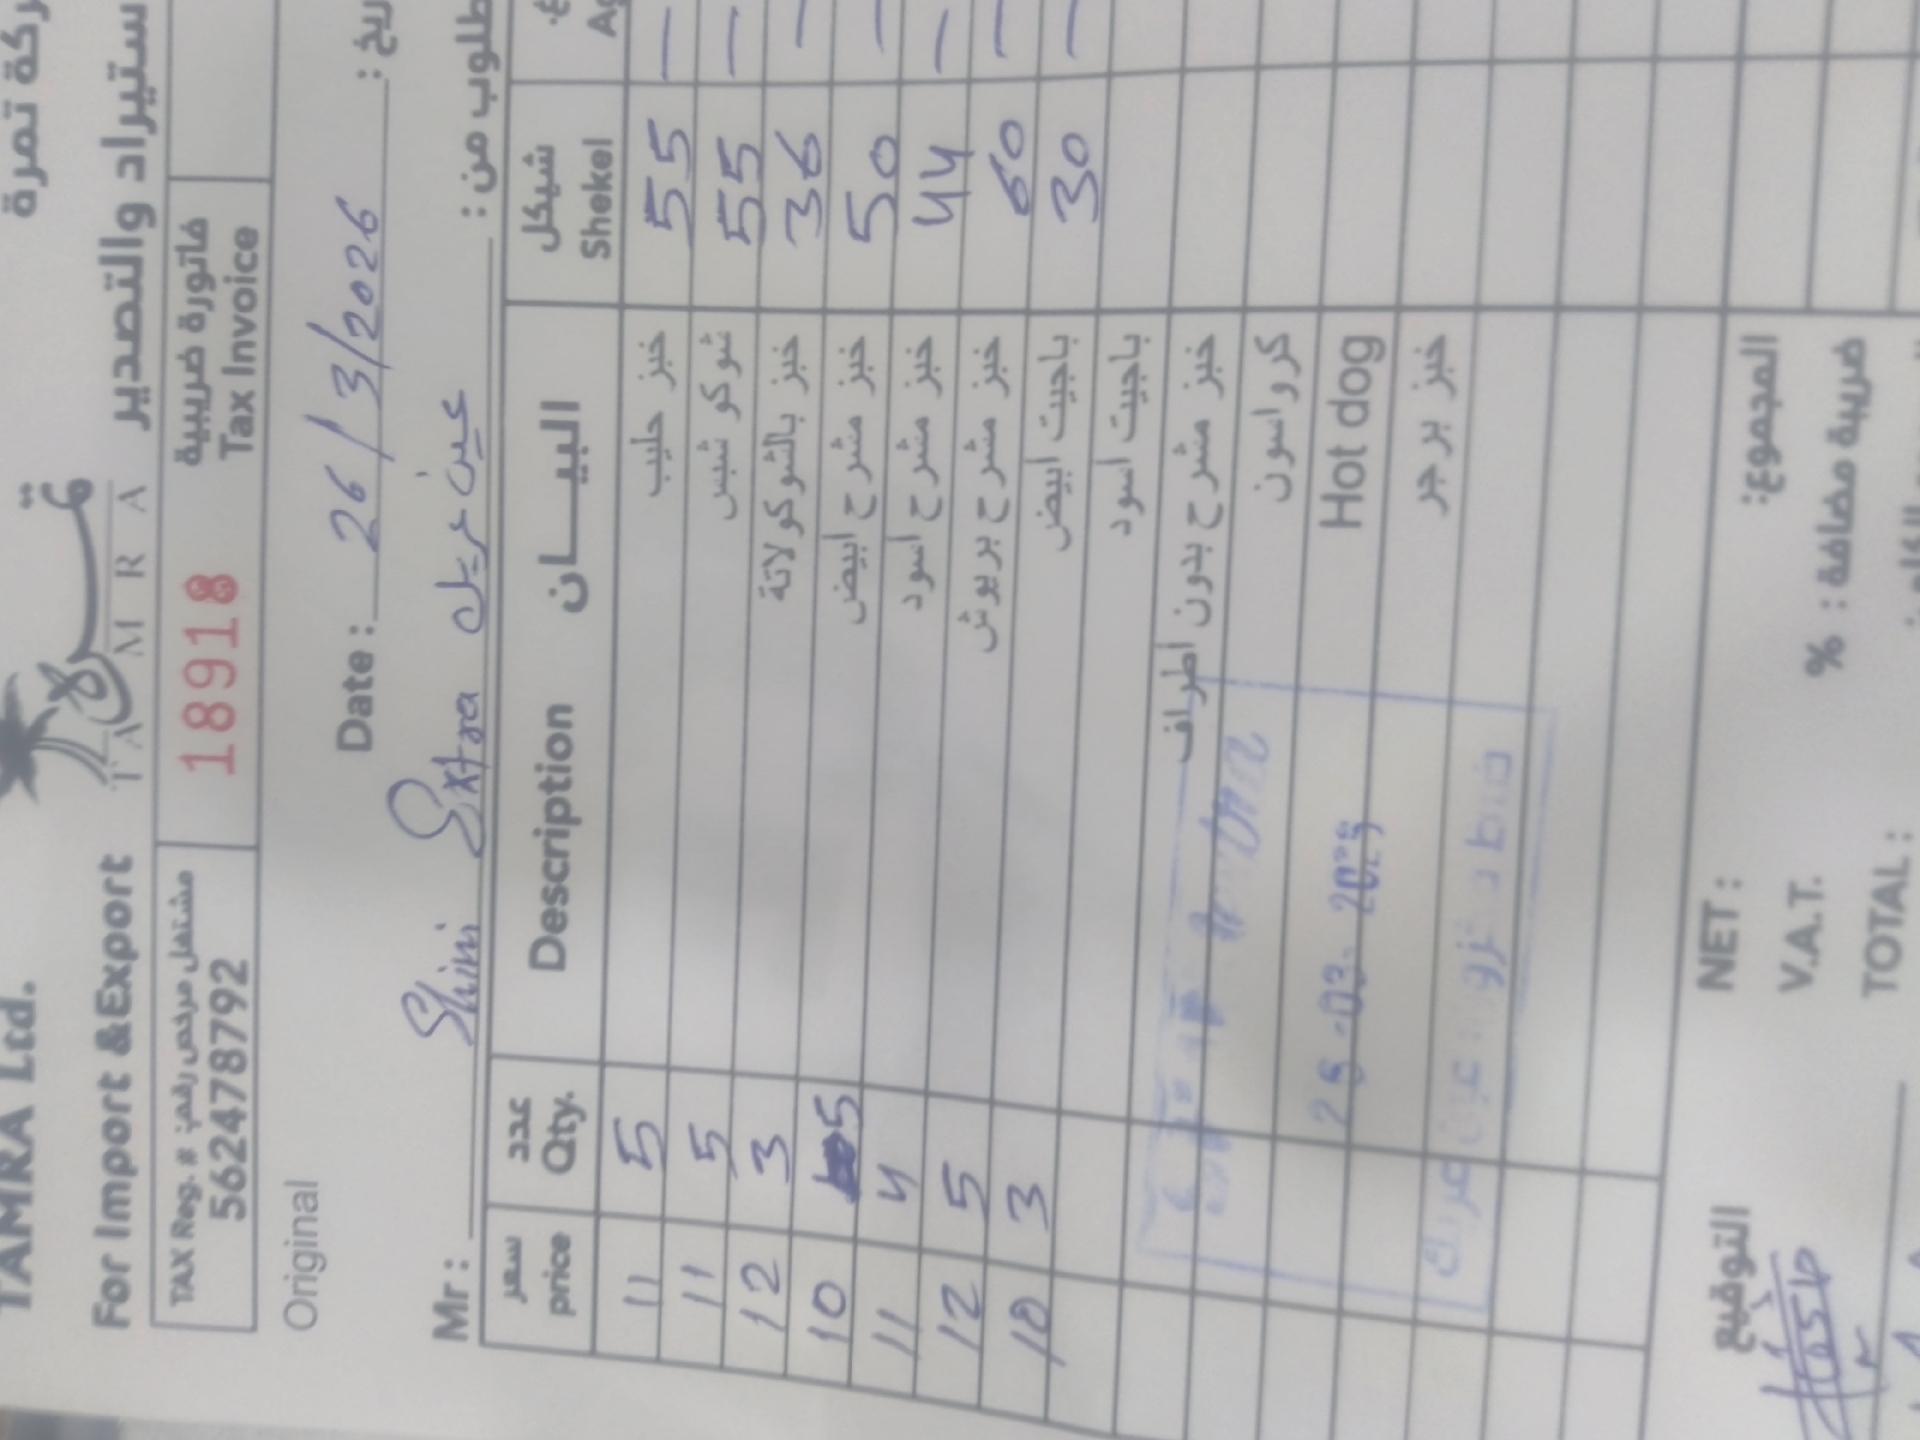 TAMRA Ltd. شركة تمرة
For Import & Export ستيراد والتصدير
تمرة
TAMRA
TAX Reg. # مشتغل مرخص رقم:
562478792
18918
فاتورة ضريبية
Tax Invoice
Original
Date : 26 / 3 / 2026
Mr : Shini Extra عين عريك
سعر price عدد Qty. Description البيـــان شيكل Shekel
11 5 خبز حليب 55 —
11 5 شوكو شبس 55 —
12 3 خبز بالشوكولاتة 36 —
10 5 خبز مشرح ابيض 50 —
11 4 خبز مشرح اسود 44 —
12 5 خبز مشرح بريوش 60 —
10 3 باجيت ابيض 30 —
باجيت اسود
خبز مشرح بدون اطراف
كرواسون
Hot dog
خبز برجر
NET : المجموع:
V.A.T. % : ضريبة مضافة
TOTAL :
التوقيع